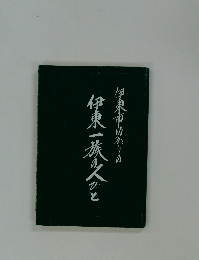 伊東市ゆかりの
伊東一族の人びと